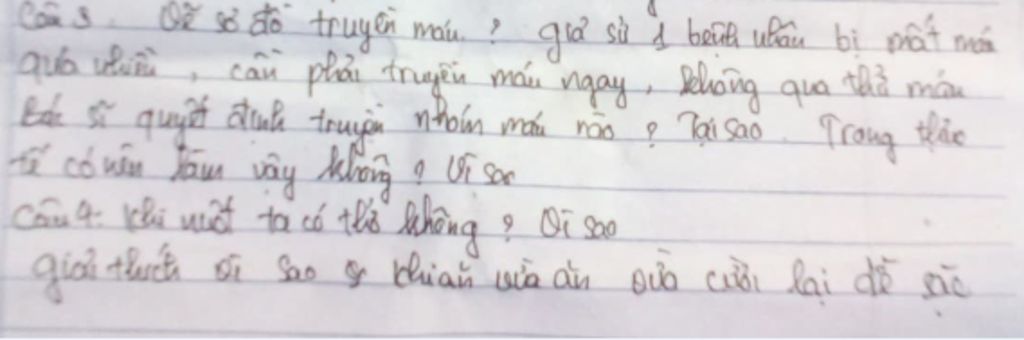 Câu 3. Vẽ sơ đồ truyền máu? giả sử 1 bệnh nhân bị mất máu
quá nhiều, cần phải truyền máu ngay, không qua thử máu
Bác sĩ quyết định truyền nhóm máu nào? Tại sao. Trong thực
tế có nên làm vậy không? Vì sao
Câu 4: Khi nuốt ta có thở không? Vì sao
giải thích vì sao khi ăn vừa ăn vừa cười lại dễ sặc